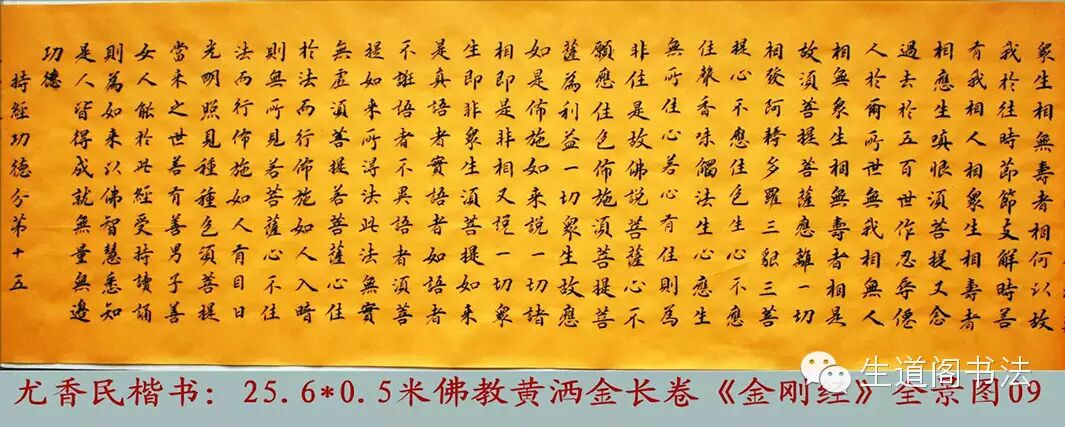 眾生相無壽者相何以故
我於往時節節支解時若
有我相人相眾生相壽者
相應生嗔恨須菩提又念
過去於五百世作忍辱僊
人於爾所世無我相無人
相無眾生相無壽者相是
故須菩提菩薩應離一切
相發阿耨多羅三藐三菩
提心不應住色生心不應
住聲香味觸法生心應生
無所住心若心有住則為
非住是故佛說菩薩心不
願應住色佈施須菩提菩
薩為利益一切眾生故應
如是佈施如來說一切諸
相即是非相又說一切眾
生即非眾生須菩提如來
是真語者實語者如語者
不誑語者不異語者須菩
提如來所得法此法無實
無虛須菩提若菩薩心住
於法而行佈施如人入暗
則無所見若菩薩心不住
法而行佈施如人有目日
光明照見種種色須菩提
當來之世若有善男子善
女人能於此經受持讀誦
則為如來以佛智慧悉知
是人皆得成就無量無邊
功德
持經功德分第十五
生道阁书法
尤香民楷书：25.6*0.5米佛教黄洒金长卷《金刚经》全景图09